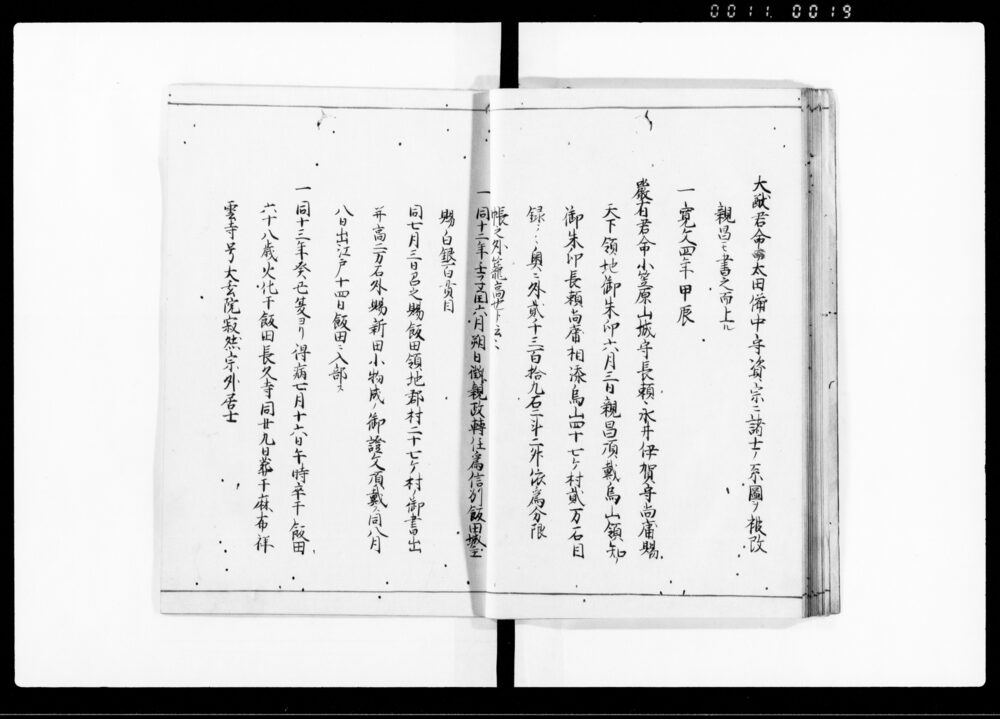 0011 0019
大猷君命シテ太田備中守資宗ニ諸士ノ系圖ヲ被改
親昌モ書之而上ル
一 寛文四年甲辰
嚴有君命小笠原山城守長頼永井伊賀守尚庸賜
天下領地御朱印六月三日親昌頂戴烏山領知
御朱印長頼尚庸相添烏山四十七ケ村貳万石目
録〻〻奥ニ外貳千三百拾九石二斗二升依為分限
帳之外籠高廿ト云〻
一 同十二年壬子閏六月朔日徴親政轉任為信州飯田城主
賜白銀百貫目
同七月三日召之賜飯田領地郡村二十七ケ村ノ御書出
并高二万石外賜新田小物成ノ御證文頂戴ス同八月
八日出江戸十四日飯田ニ入部ス
一 同十三年癸丑夏ヨリ得病七月十六日午時卒于飯田
六十八歳火化于飯田長久寺同廿九日葬于麻布祥
雲寺号大玄院寂然宗外居士